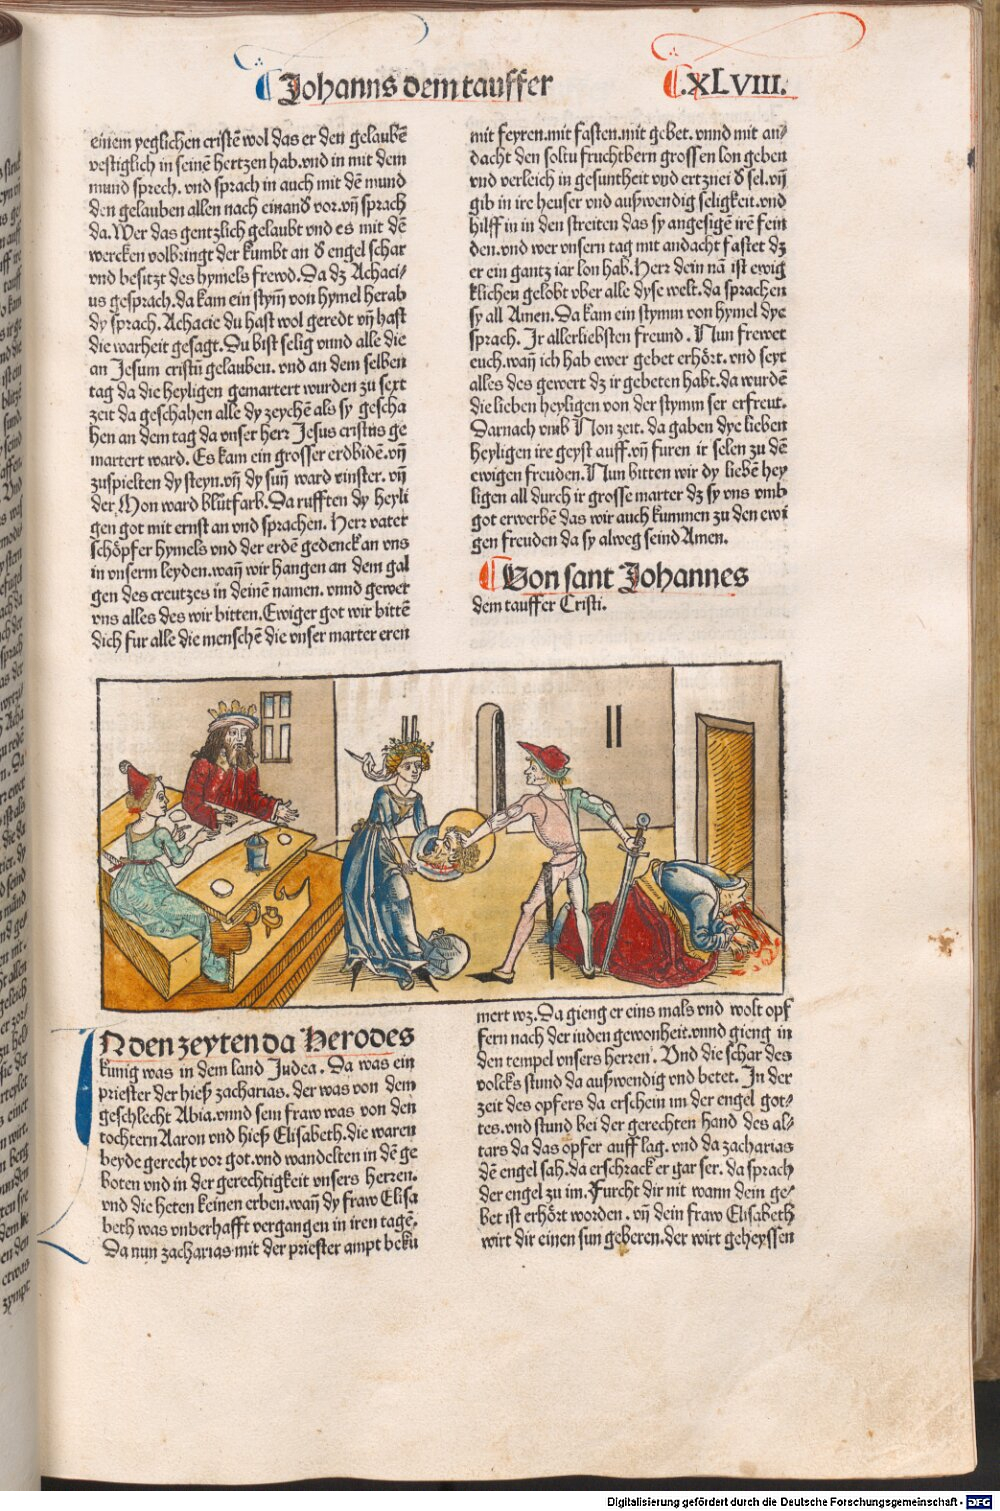 Johanns dem tauffer
.XLVIII.
einem yeglichen cristē wol das er den gelaubē
vestiglich in seinē hertzen hab. vnd in mit dem
mund sprech. vnd sprach in auch mit dē mund
den gelauben allen nach einand vor. vn̄ sprach
da. Wer das gentzlich gelaubt vnd es mit dē
wercken volbringt der kumbt an d engel schar
vnd besitzt des hymels frewd. Da dz Achaci⸗
us gesprach. da kam ein stym̄ von hymel herab
dy sprach. Achacie du hast wol geredt vn̄ hast
die warheit gesagt. Du bist selig vnnd alle die
an Jesum cristū gelauben. vnd an dem selben
tag da die heyligen gemartert wurden zu sext
zeit da geschahen alle dy zeychē als sy gescha
hen an dem tag da vnser herr Jesus cristus ge
martert ward. Es kam ein grosser erdbidē. vn̄
zuspielten dy steyn. vn̄ dy sun̄ ward vinster. vn̄
der Mon ward blůtfarb. Da rufften dy heyli
gen got mit ernst an vnd sprachen. Herr vater
schöpfer hymels vnd der erdē gedenck an vns
in vnserm leyden. wan̄ wir hangen an dem gal
gen des creutzes in deinē namen. vnnd gewer
vns alles des wir bitten. Ewiger got wir bittē
dich fur alle die menschē die vnser marter eren
mit feyren. mit fasten. mit gebet. vnnd mit an⸗
dacht den soltu fruchtbern grossen lon geben
vnd verleich in gesuntheit vnd ertznei d sel. vn̄
gib in ire heuser vnd außwendig seligkeit. vnd
hilff in in den streiten das sy angesigē irē fein
den. vnd wer vnsern tag mit andacht fastet dz
er ein gantz iar lon hab. Herr dein nā ist ewig
klichen gelobt vber alle dyse welt. da sprachen
sy all Amen. Da kam ein stymm von hymel dye
sprach. Ir allerliebsten freund. Nun frewet
euch. wan̄ ich hab ewer gebet erhört. vnd seyt
alles des gewert dz ir gebeten habt. da wurdē
die lieben heyligen von der stymm ser erfreut.
Darnach vmb Non zeit. da gaben dye lieben
heyligen ire geyst auff. vn̄ furen ir selen zu dē
ewigen freuden. Nun bitten wir dy liebē hey
ligen all durch ir grosse marter dz sy vns vmb
got erwerbē das wir auch kummen zu den ewi
gen freuden da sy alweg seind Amen.
Von sant Johannes
dem tauffer Cristi.
IN den zeyten da Herodes
kunig was in dem land Judea. Da was ein
priester der hieß zacharias. der was von dem
geschlecht Abia. vnnd sein fraw was von den
tochtern Aaron vnd hieß Elisabeth. die waren
beyde gerecht vor got. vnd wandelten in dē ge
boten vnd in der gerechtigkeit vnsers herren.
vnd die heten keinen erben. wan̄ dy fraw Elisa
beth was vnberhafft vergangen in iren tagē.
Da nun zacharias mit der priester ampt bekū
mert wz. Da gieng er eins mals vnd wolt opf
fern nach der iuden gewonheit. vnnd gieng in
den tempel vnsers herren. Vnd die schar des
volcks stund da außwendig vnd betet. In der
zeit des opfers da erschein im der engel got⸗
tes. vnd stund bei der gerechten hand des al⸗
tars da das opfer auff lag. vnd da zacharias
dē engel sah. da erschrack er gar ser. da sprach
der engel zu im. Furcht dir nit wann dein ge⸗
bet ist erhört worden. vn̄ dein fraw Elisabeth
wirt dir einen sun geberen. der wirt geheyssen
Digitalisierung gefördert durch die Deutsche Forschungsgemeinschaft - DFG